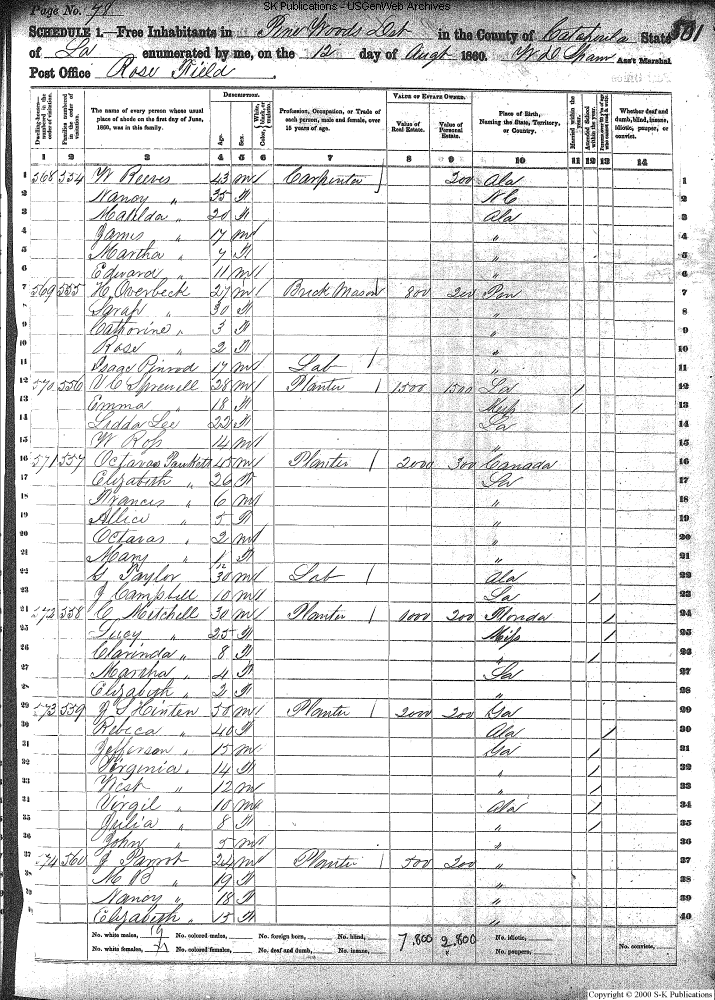 SK Publications - USGenWeb Archives
Page No. 78
SCHEDULE 1.—Free Inhabitants in Pine Woods Dist in the County of Catahoula State 501
of La enumerated by me, on the 12 day of Augt 1860. Ass't Marshal.
Post Office Rose Field
DESCRIPTION. VALUE OF ESTATE OWNED.
Dwelling-houses—numbered in the order of visitation. Families numbered in the order of visitation. The name of every person whose usual place of abode on the first day of June, 1860, was in this family. Age. Sex. Color, White, black, or mulatto. Profession, Occupation, or Trade of each person, male and female, over 15 years of age. Value of Real Estate. Value of Personal Estate. Place of Birth, Naming the State, Territory, or Country. Married within the year. Attended School within the year. Whether deaf and dumb, blind, insane, idiotic, pauper, or convict.
1 2 3 4 5 6 7 8 9 10 11 12 13 14
1 568 554 W Reeves 43 m / Carpenter 200 Ala 1
2 Nancy " 35 f NC 2
3 Matilda " 20 f Ala 3
4 James " 17 m " 4
5 Martha " 7 f " 5
6 Edward " 11 m / " 6
7 569 555 H Overbeck 27 m / Brick Mason 800 200 Pen 7
8 Sarah " 30 f " 8
9 Catherine " 3 f " 9
10 Rose " 2 f " 10
11 Isaac Penrod 17 m / Lab / " 11
12 570 556 28 m / Planter / 1500 1500 La / 12
13 Emma " 18 f Miss / 13
14 Lee 22 f La 14
15 W Ross 14 m " 15
16 571 557 Octavas 45 m / Planter / 2000 300 Canada 16
17 Elizabeth " 26 f La 17
18 Francis " 6 m " 18
19 Allice " 5 f " 19
20 Octavas " 2 m " 20
21 Mary " 1/12 f " 21
22 G Taylor 30 m Lab / Ala 22
23 J Campbell 10 m La / 23
24 572 558 C Mitchell 30 m / Planter / 1000 200 Florida / 24
25 Lucy " 25 f Miss / 25
26 Clarinda " 8 f " / 26
27 Martha " 4 f La 27
28 Elizabeth " 2 f " 28
29 573 559 J S Hinten 50 m / Planter / 2000 200 Ga 29
30 Rebeca " 40 f Ala / 30
31 Jefferson " 15 m Ga / 31
32 Virginia " 14 f " / 32
33 West " 12 m " / 33
34 Virgil " 10 m Ala / 34
35 Julia " 8 f " / 35
36 John " 5 m " 36
37 574 560 J Parrot 24 m Planter / 500 200 " 37
38 M B " 19 f " 38
39 Nancy " 18 f " 39
40 Elizabeth " 15 f " 40
No. white males, 19 No. colored males, No. foreign born, No. blind, 7,800 2,800 No. idiotic,
No. white females, 21 No. colored females, No. deaf and dumb, No. insane, No. paupers, No. convicts,
Copyright © 2000 S-K Publications